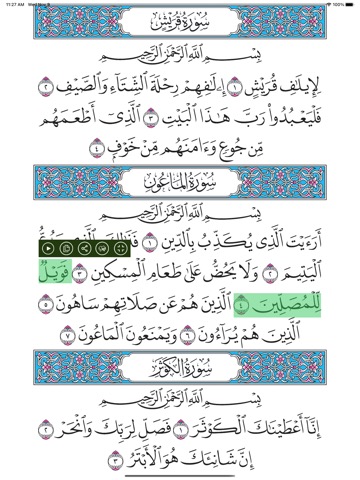 11:27 AM Wed Nov 9
100%
سُورَةُ قُرَيْشٍ
بِسْمِ ٱللَّهِ ٱلرَّحْمَٰنِ ٱلرَّحِيمِ
لِإِيلَٰفِ قُرَيْشٍ ١ إِۦلَٰفِهِمْ رِحْلَةَ ٱلشِّتَآءِ وَٱلصَّيْفِ ٢
فَلْيَعْبُدُوا۟ رَبَّ هَٰذَا ٱلْبَيْتِ ٣ ٱلَّذِىٓ أَطْعَمَهُم
مِّن جُوعٍ وَءَامَنَهُم مِّنْ خَوْفٍۭ ٤
سُورَةُ المَاعُونِ
بِسْمِ ٱللَّهِ ٱلرَّحْمَٰنِ ٱلرَّحِيمِ
أَرَءَيْتَ ٱلَّذِى يُكَذِّبُ بِٱلدِّينِ ١
ٱلْيَتِيمَ ٢ وَلَا يَحُضُّ عَلَىٰ طَعَامِ ٱلْمِسْكِينِ ٣ فَوَيْلٌ
لِّلْمُصَلِّينَ ٤ ٱلَّذِينَ هُمْ عَن صَلَاتِهِمْ سَاهُونَ ٥
ٱلَّذِينَ هُمْ يُرَآءُونَ ٦ وَيَمْنَعُونَ ٱلْمَاعُونَ ٧
سُورَةُ الكَوْثَرِ
بِسْمِ ٱللَّهِ ٱلرَّحْمَٰنِ ٱلرَّحِيمِ
إِنَّآ أَعْطَيْنَٰكَ ٱلْكَوْثَرَ ١ فَصَلِّ لِرَبِّكَ وَٱنْحَرْ ٢
إِنَّ شَانِئَكَ هُوَ ٱلْأَبْتَرُ ٣